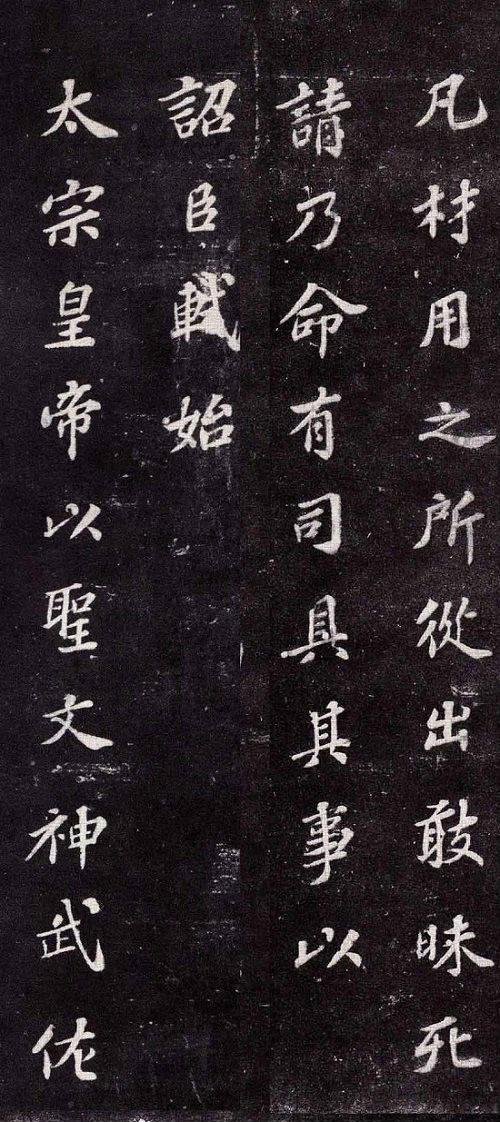 凡材用之所從出敢昧死
請乃命有司具其事以
詔臣軾始
太宗皇帝以聖文神武佐